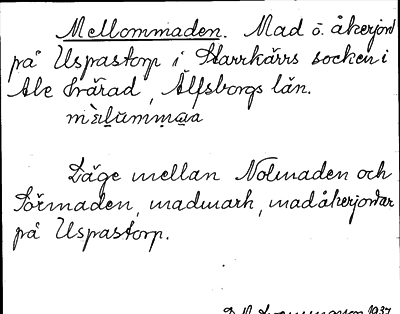 Mellommaden. Mad o. åkerjord
på Uspastorp i Starrkärrs socken i
Ale härad, Älfsborgs län.
Läge mellan Nolmaden och
Sörmaden, madmark, madåkerjordar
på Uspastorp.
1937